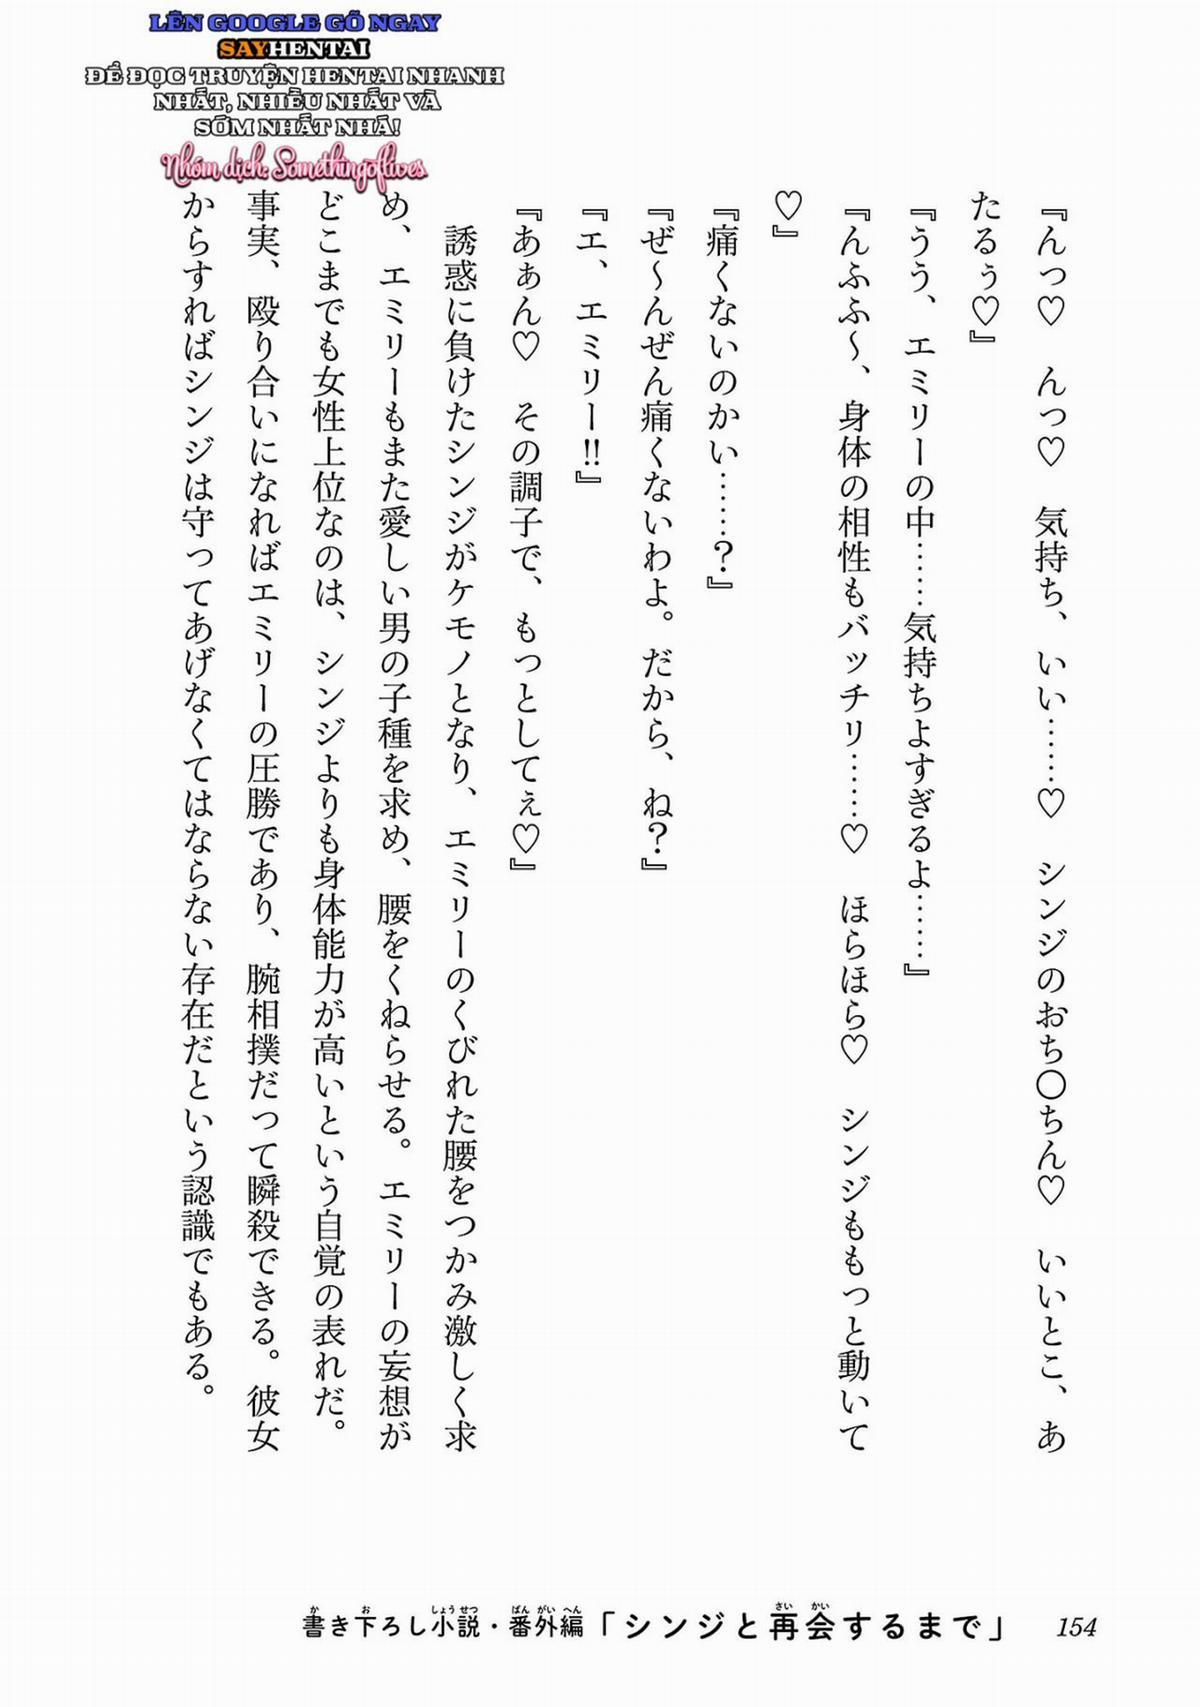 LÊN GOOGLE GÕ NGAY
SAYHENTAI
ĐỂ ĐỌC TRUYỆN HENTAI NHANH
NHẤT, NHIỀU NHẤT VÀ
SỚM NHẤT NHÁ!
Nhóm dịch: Somethingoflives
『んっ♡　んっ♡　気持ち、いい……♡　シンジのおち〇ちん♡　いいとこ、あ
たるぅ♡』
『うう、エミリーの中……気持ちよすぎるよ……』
『んふふ～、身体の相性もバッチリ……♡　ほらほら♡　シンジももっと動いて
♡』
『痛くないのかい……？』
『ぜ～んぜん痛くないわよ。だから、ね？』
『エ、エミリー!!』
『あぁん♡　その調子で、もっとしてぇ♡』
　誘惑に負けたシンジがケモノとなり、エミリーのくびれた腰をつかみ激しく求
め、エミリーもまた愛しい男の子種を求め、腰をくねらせる。エミリーの妄想が
どこまでも女性上位なのは、シンジよりも身体能力が高いという自覚の表れだ。
事実、殴り合いになればエミリーの圧勝であり、腕相撲だって瞬殺できる。彼女
からすればシンジは守ってあげなくてはならない存在だという認識でもある。
書き下ろし小説・番外編「シンジと再会するまで」 154